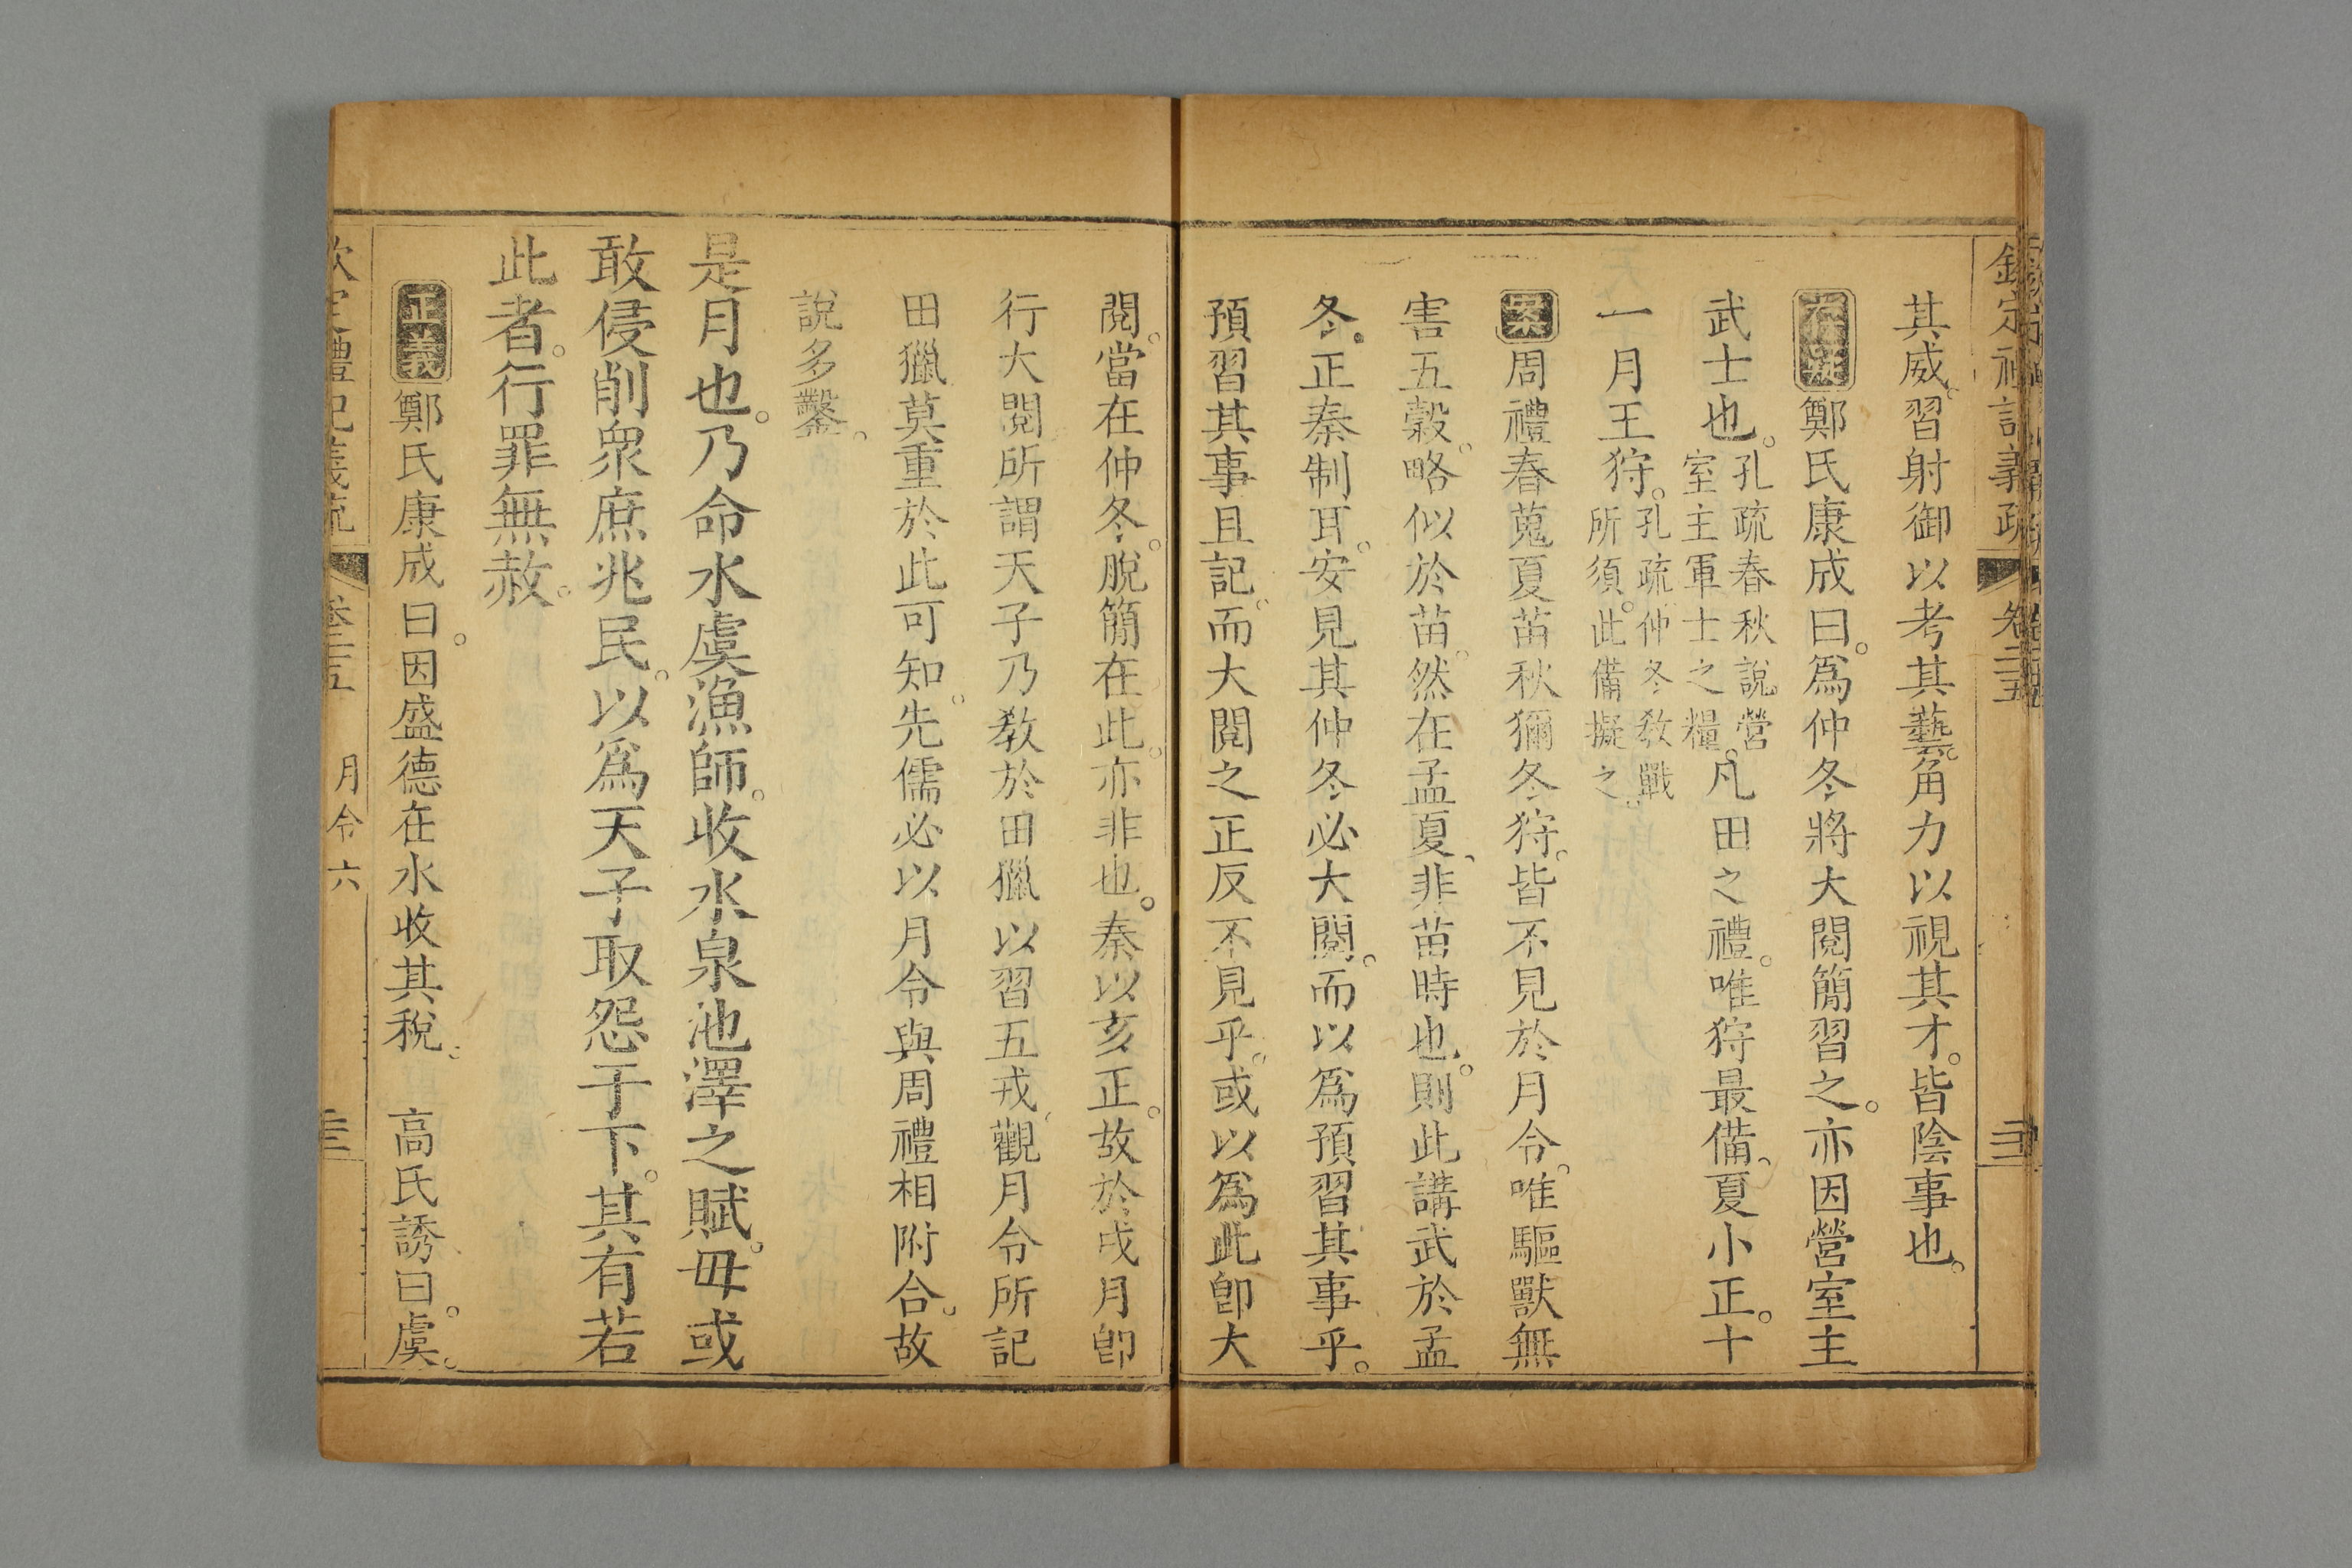 欽定禮記義疏 卷二十五
其威。習射御以考其藝。角力以視其才。皆陰事也。
存疑 鄭氏康成曰。爲仲冬將大閱簡習之。亦因營室主
武士也。孔疏春秋說營室主軍士之糧。凡田之禮。唯狩最備、夏小正。十
一月王狩。孔疏仲冬敎戰所須。此備擬之。
案 周禮春蒐夏苗秋獮冬狩。皆不見於月令。唯驅獸無
害五穀。略似於苗。然在孟夏、非苗時也。則此講武於孟
冬。正秦制耳。安見其仲冬必大閱。而以爲預習其事乎。
預習其事且記。而大閱之正反不見乎。或以爲此卽大
閱。當在仲冬。脫簡在此。亦非也。秦以亥正。故於戌月卽
行大閱所謂天子乃敎於田獵以習五戎、觀月令所記
田獵莫重於此可知。先儒必以月令與周禮相附合。故
說多鑿。
是月也。乃命水虞漁師。收水泉池澤之賦。毋或
敢侵削衆庶兆民。以爲天子取怨于下。其有若
此者。行罪無赦。
正義 鄭氏康成曰。因盛德在水收其稅。 高氏誘曰。虞。
月令六